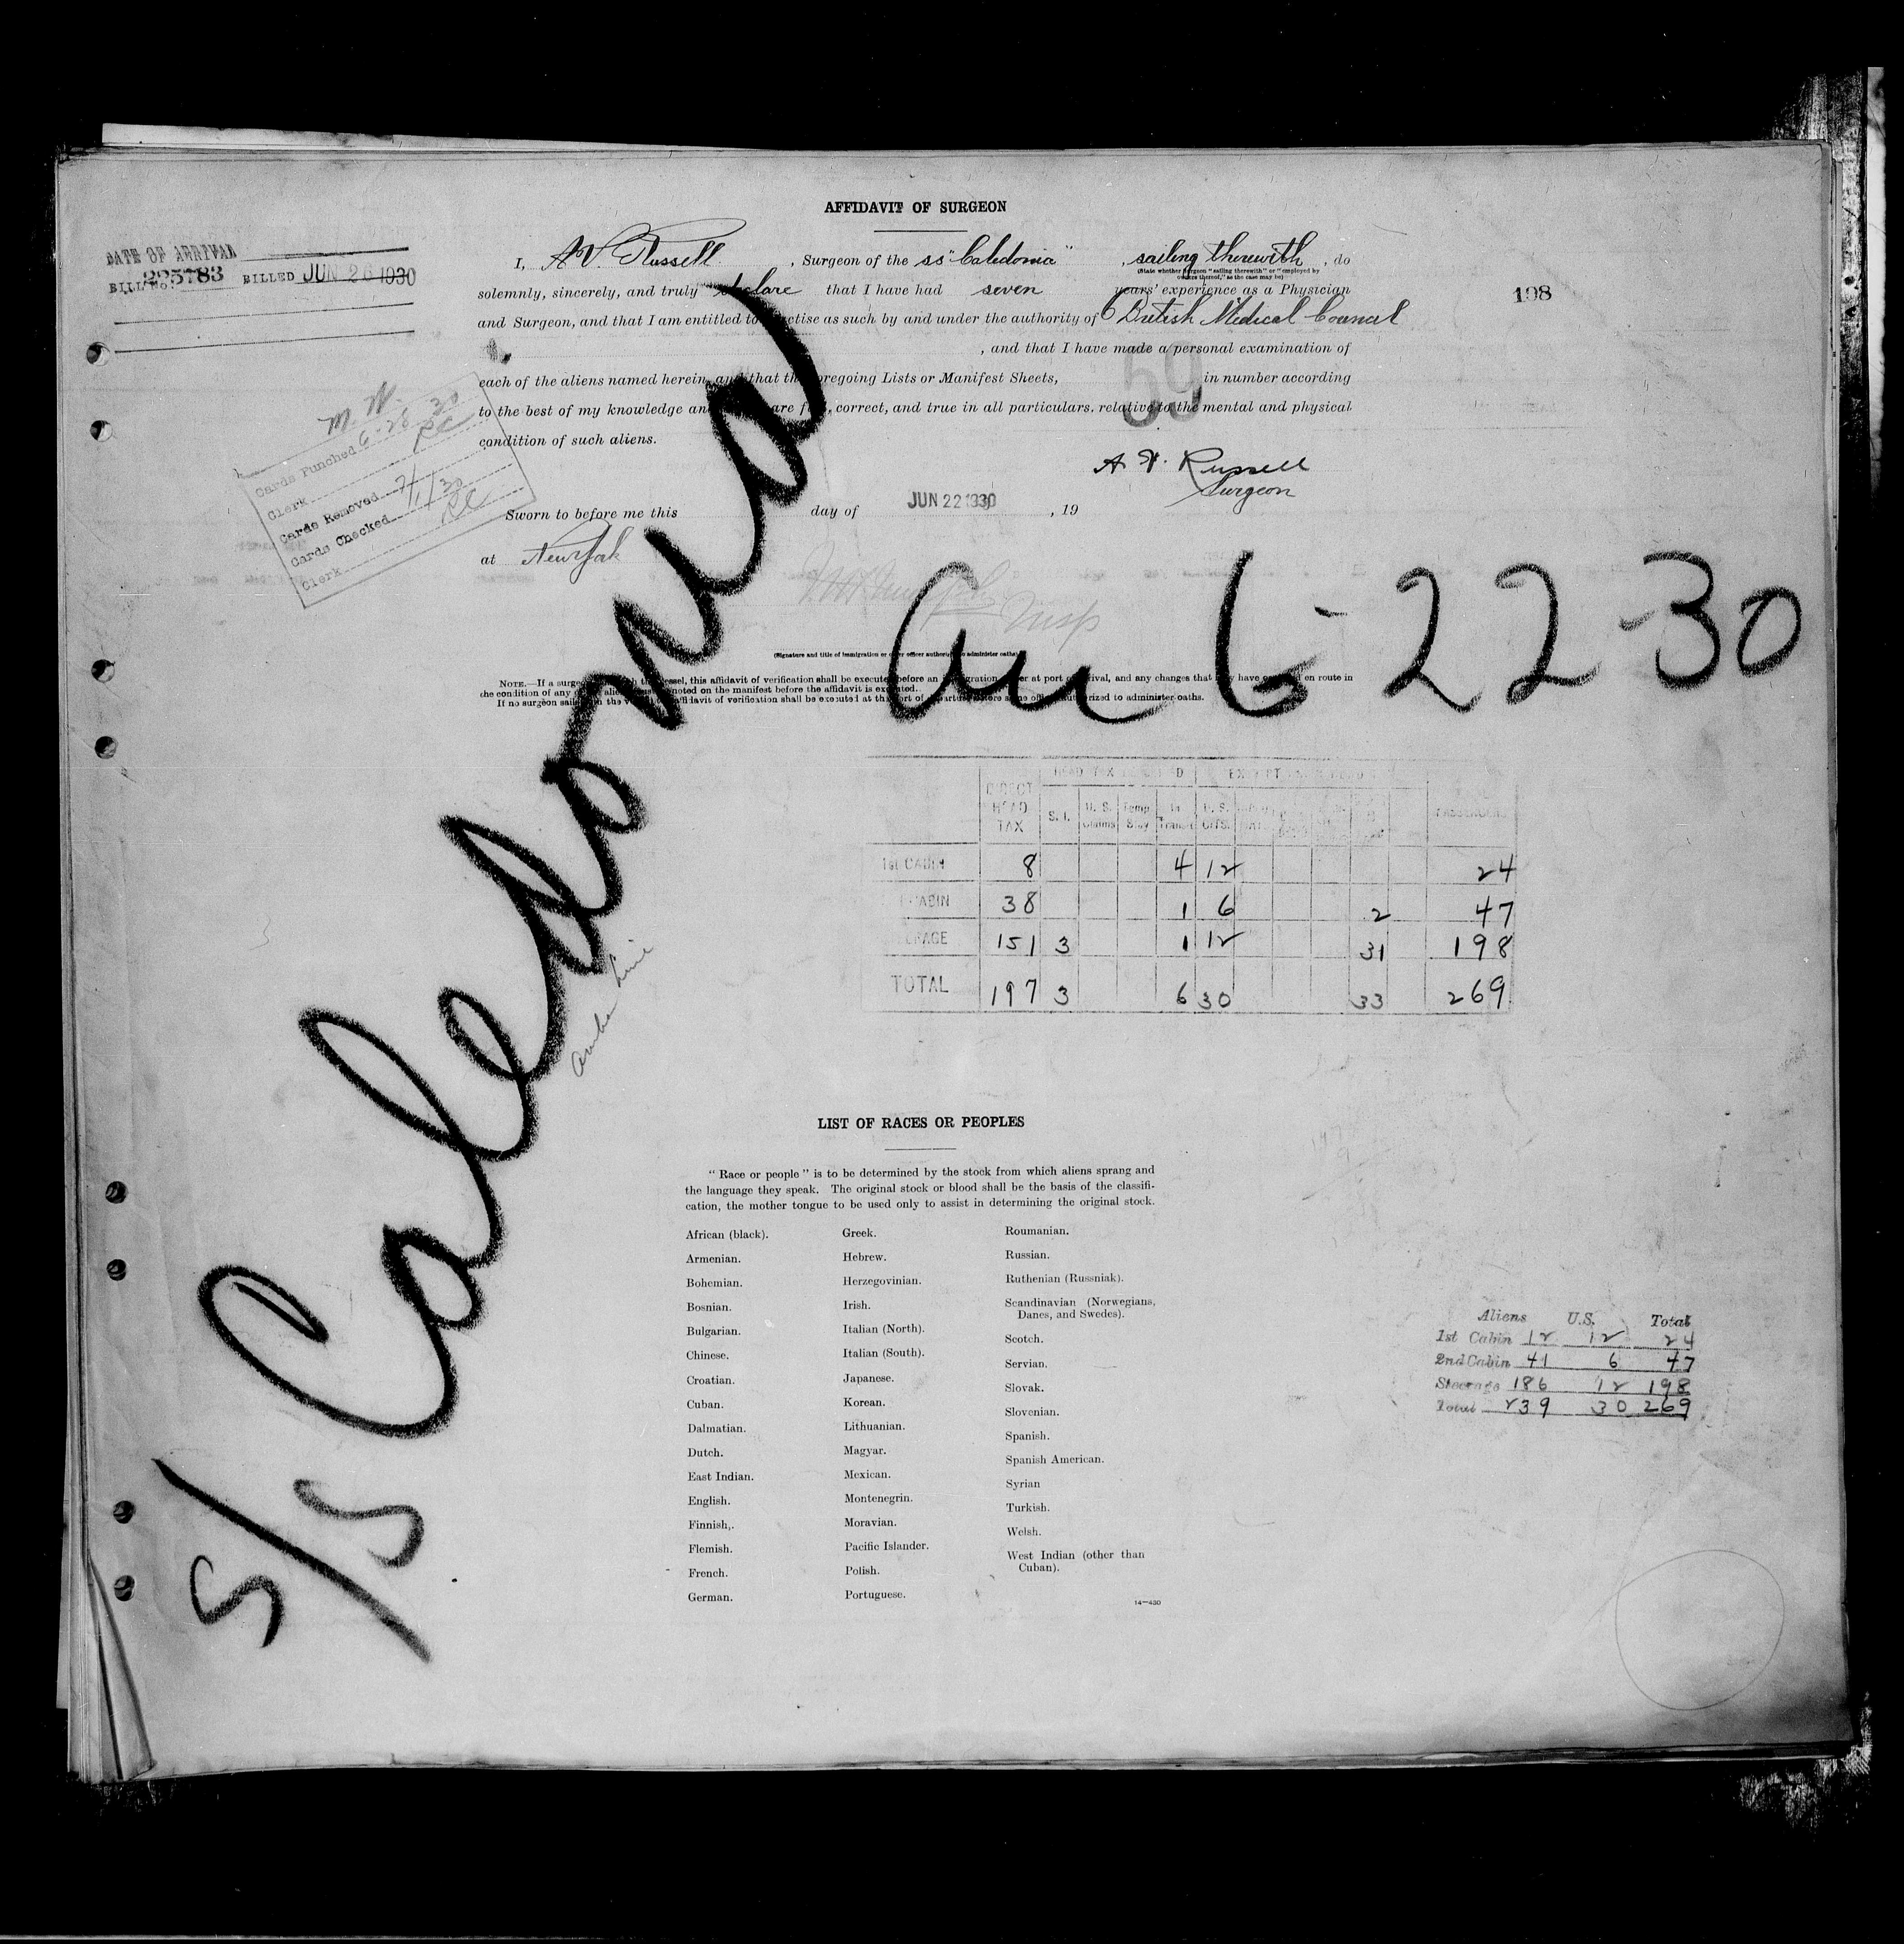 AFFIDAVIT OF SURGEON
DATE OF ARRIVAL
BILL No. 225783 BILLED JUN 26 1930
I, A.V. Russell, Surgeon of the ss "Caledonia", sailing therewith, do
(State whether surgeon "sailing therewith" or "employed by
owners thereof," as the case may be)
solemnly, sincerely, and truly declare that I have had seven years' experience as a Physician
198
and Surgeon, and that I am entitled to practise as such by and under the authority of British Medical Council
, and that I have made a personal examination of
each of the aliens named herein, and that the foregoing Lists or Manifest Sheets, 59 in number according
to the best of my knowledge and are full, correct, and true in all particulars, relative to the mental and physical
condition of such aliens.
A. V. Russell
Surgeon
Cards Punched 6-26 30
Clerk
Cards Removed 7/1/30
Cards Checked
Clerk
Sworn to before me this day of JUN 22 1930, 19
at New York
Insp
(Signature and title of immigration or other officer authorized to administer oaths)
NOTE.—If a surgeon vessel, this affidavit of verification shall be executed before an immigration officer at port of arrival, and any changes that may have occurred en route in
the condition of any alien noted on the manifest before the affidavit is executed.
If no surgeon sails on the vessel affidavit of verification shall be executed at the port of departure before some officer authorized to administer oaths.
S/S Caledonia
Line
Arr 6-22-30
DIRECT HEAD TAX S. I. U. S. Claims Temp Stay In Transit U. S. CITS. PASSENGERS
1st CABIN 8 4 12 24
CABIN 38 1 6 2 47
STEERAGE 151 3 1 12 31 198
TOTAL 197 3 6 30 33 269
LIST OF RACES OR PEOPLES
"Race or people" is to be determined by the stock from which aliens sprang and
the language they speak. The original stock or blood shall be the basis of the classifi-
cation, the mother tongue to be used only to assist in determining the original stock.
African (black).
Armenian.
Bohemian.
Bosnian.
Bulgarian.
Chinese.
Croatian.
Cuban.
Dalmatian.
Dutch.
East Indian.
English.
Finnish,.
Flemish.
French.
German.
Greek.
Hebrew.
Herzegovinian.
Irish.
Italian (North).
Italian (South).
Japanese.
Korean.
Lithuanian.
Magyar.
Mexican.
Montenegrin.
Moravian.
Pacific Islander.
Polish.
Portuguese.
Roumanian.
Russian.
Ruthenian (Russniak).
Scandinavian (Norwegians,
Danes, and Swedes).
Scotch.
Servian.
Slovak.
Slovenian.
Spanish.
Spanish American.
Syrian
Turkish.
Welsh.
West Indian (other than
Cuban).
14—430
Aliens U.S. Total
1st Cabin 12 12 24
2nd Cabin 41 6 47
Steerage 186 12 198
Total 239 30 269